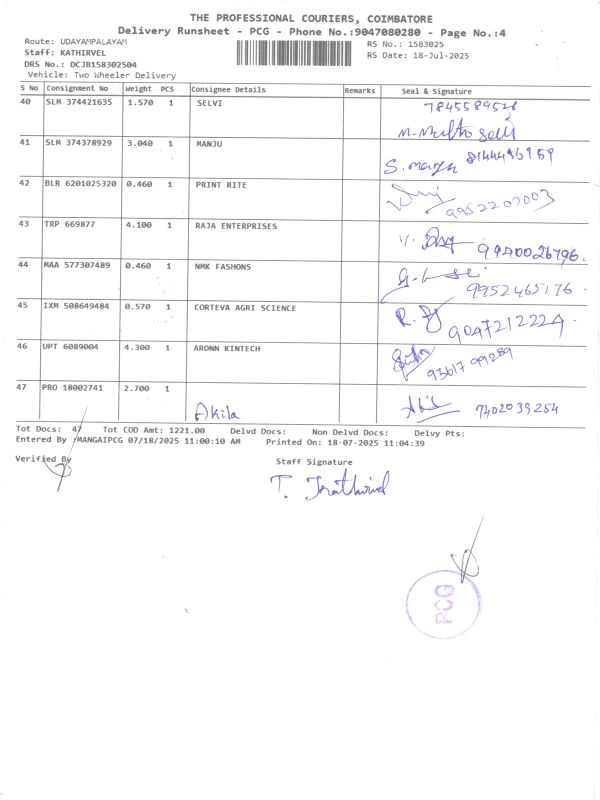 THE PROFESSIONAL COURIERS, COIMBATORE
Delivery Runsheet - PCG - Phone No.:9047080280 - Page No.:4
Route: UDAYAMPALAYAM
RS No.: 1583025
Staff: KATHIRVEL
RS Date: 18-Jul-2025
DRS No.: DCJB158302504
Vehicle: Two Wheeler Delivery
S No Consignment No Weight PCS Consignee Details Remarks Seal & Signature
40 SLM 374421635 1.570 1 SELVI
7845589526
M. Muthu Selvi
41 SLM 374378929 3.040 1 MANJU
S. Manju 8144496959
42 BLR 6201025320 0.460 1 PRINT RITE
9952207003
43 TRP 669877 4.100 1 RAJA ENTERPRISES
9940026796.
44 MAA 577307489 0.460 1 NMK FASHONS
9952465176.
45 IXM 508649484 0.570 1 CORTEVA AGRI SCIENCE
9047212224.
46 UPT 6089004 4.300 1 ARONN KINTECH
9361799289
47 PRO 18002741 2.700 1
Akila
7402039254
Tot Docs: 47 Tot COD Amt: 1221.00 Delvd Docs: Non Delvd Docs: Delvy Pts:
Entered By :MANGAIPCG 07/18/2025 11:00:10 AM Printed On: 18-07-2025 11:04:39
Verified By
Staff Signature
PCG